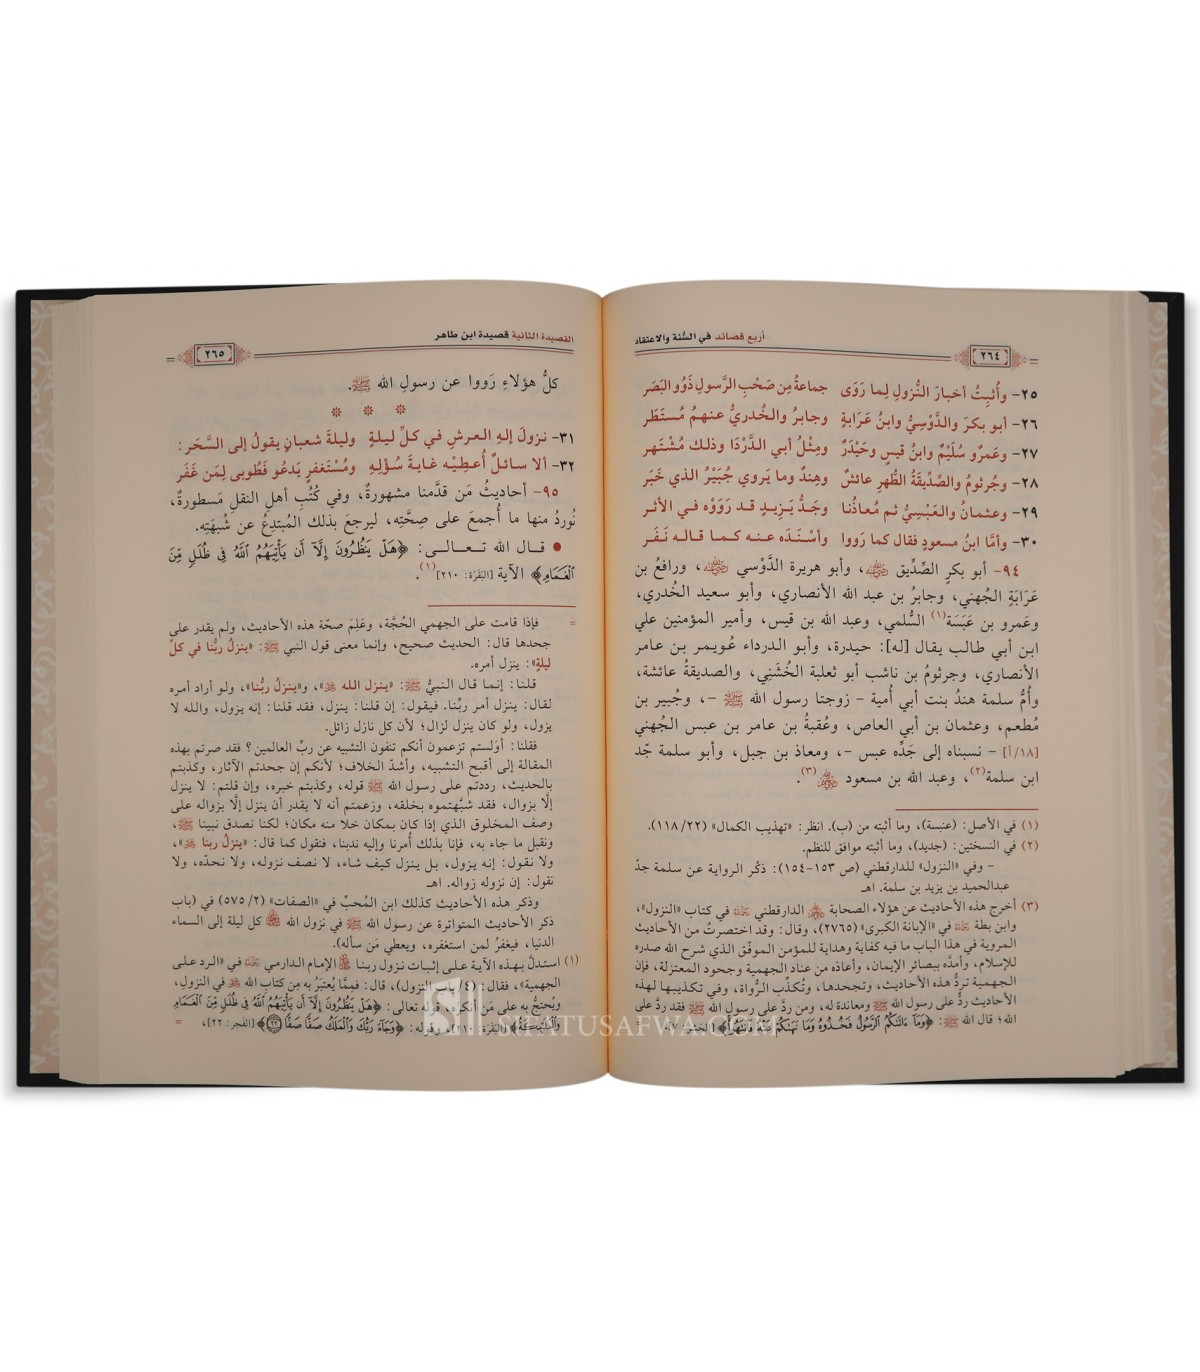 أربع قصائد في السُّنة والاعتقاد
٢٦٤
٢٥- وأُثبِتُ أخبارَ النُّزولِ لِما رَوَى جماعةٌ مِن صَحْبِ الرَّسولِ ذَوُو البَصَر
٢٦- أبو بكرَ والدَّوْسِيُّ وابنُ عَرَابَةٍ وجابرُ والخُدريُّ عنهمُ مُستَطَر
٢٧- وعَمرُو سُلَيْمٌ وابنُ قيسٍ وحَيْدَرٌ ومِثْلُ أبي الدَّرْدَا وذلك مُشْتَهر
٢٨- وجُرثومُ والصِّدِّيقةُ الطُّهرِ عائشٌ وهِندٌ وما يَروي جُبَيْرُ الذي خَبَر
٢٩- وعثمانُ والعَبْسِيُّ ثم مُعاذُنا وجَدُّ يَزِيدٍ قد رَوَوْه في الأثر
٣٠- وأمَّا ابنُ مسعودٍ فقال كما رَووا وأسْنَدَه عنه كما قاله نَفَر
٩٤- أبو بكرٍ الصِّدِّيق ﷺ، وأبو هريرة الدَّوْسي ﷺ، ورافعُ بن
عَرَابَةَ الجُهني، وجابرُ بن عبد الله الأنصاري، وأبو سعيد الخُدري،
وعَمرو بن عَبَسَة(١) السُّلمي، وعبد الله بن قيس، وأمير المؤمنين علي
ابن أبي طالب يقال [له]: حيدرة، وأبو الدرداء عُويمر بن عامر
الأنصاري، وجرثومُ بن ناشب أبو ثعلبة الخُشَنِي، والصديقةُ عائشة،
وأُمُّ سلمة هندُ بنت أبي أُمية - زوجتا رسول الله ﷺ -، وجُبير بن
مُطعم، وعثمان بن أبي العاص، وعُقبةُ بن عامر بن عبس الجُهني
[١٨/أ] - نسبناه إلى جَدِّه عبس -، ومعاذ بن جبل، وأبو سلمة جّد
ابن سلمة(٢)، وعبد الله بن مسعود (٣).
(١) في الأصل: (عنبسة)، وما أثبته من (ب). انظر: «تهذيب الكمال» (١١٨/٢٢).
(٢) في النسختين: (جديد)، وما أثبته موافق للنظم.
- وفي «النزول» للدارقطني (ص ١٥٣-١٥٤): ذكْر الرواية عن سلمة جدّ
عبدالحميد بن يزيد بن سلمة. اهـ
(٣) أخرج هذه الأحاديث عن هؤلاء الصحابة الدارقطني في كتاب «النزول»،
وابن بطة في «الإبانة الكبرى» (٢٧٦٥)، وقال: وقد اختصرتُ من الأحاديث
المروية في هذا الباب ما فيه كفاية وهداية للمؤمن الموفّق الذي شرح الله صدره
للإسلام، وأمدَّه ببصائر الإيمان، وأعاذه من عناد الجهمية وجحود المعتزلة، فإن
الجهمية تردُّ هذه الأحاديث، وتجحدها، وتُكذِّب الرُّواة، وفي تكذيبها لهذه
الأحاديث ردٌّ على رسول الله ﷺ ومعاندة له، ومن ردَّ على رسول الله ﷺ فقد ردَّ على
الله؛ قال الله: ﴿وَمَآ ءَاتَىٰكُمُ ٱلرَّسُولُ فَخُذُوهُ وَمَا نَهَىٰكُمْ عَنْهُ فَٱنتَهُوا۟﴾
القصيدة الثانية قصيدة ابن طاهر
٢٦٥
كلُّ هؤلاءِ رَووا عن رسولِ الله ﷺ.
٣١- نزولَ إلهِ العرشِ في كلِّ ليلةٍ وليلةَ شعبانٍ يقولُ إلى السَّحَر:
٣٢- ألا سائلٌ أُعطِيْه غايةَ سُؤلِهِ ومُسْتَغفرٍ يَدعُو فَطُوبى لِمَن غَفَر
٩٥- أحاديثُ مَن قدَّمنا مشهورةٌ، وفي كُتُبِ أهلِ النقلِ مَسطورةٌ،
نُوردُ منها ما أُجمعَ على صِحَّتِه، ليرجعَ بذلك المُبتدِعُ عن شُبهَتِه.
• قال الله تعالى: ﴿هَلْ يَنظُرُونَ إِلَّآ أَن يَأْتِيَهُمُ ٱللَّهُ فِى ظُلَلٍ مِّنَ
ٱلْغَمَامِ﴾ الآية [البَقَرَة: ٢١٠](١).
= فإذا قامت على الجهمي الحُجَّة، وعَلِمَ صحّة هذه الأحاديث، ولم يقدر على
جحدها قال: الحديث صحيح، وإنما معنى قول النبي ﷺ: «ينزلُ ربُّنا في كلِّ
ليلةٍ»: ينزل أمره.
قلنا: إنما قال النبيُّ ﷺ: «ينزل الله»، و«ينزلُ ربُّنا»، ولو أراد أمره
لقال: ينزل أمر ربِّنا. فيقول: إن قلنا: ينزل، فقد قلنا: إنه يزول، والله لا
يزول، ولو كان ينزل لزال؛ لأن كل نازل زائل.
فقلنا: أوَلستم تزعمون أنكم تنفون التشبيه عن ربِّ العالمين؟ فقد صرتم بهذه
المقالة إلى أقبح التشبيه، وأشدّ الخلاف؛ لأنكم إن جحدتم الآثار، وكذبتم
بالحديث، رددتم على رسول الله ﷺ قوله، وكذبتم خبره، وإن قلتم: لا ينزل
إلَّا بزوال، فقد شبَّهتموه بخلقه، وزعمتم أنه لا يقدر أن ينزل إلَّا بزواله على
وصف المخلوق الذي إذا كان بمكان خلا منه مكان؛ لكنا نصدق نبينا ﷺ،
ونقبل ما جاء به، فإنا بذلك أُمرنا وإليه ندبنا، فنقول كما قال: «ينزلُ ربنا»،
ولا نقول: إنه يزول، بل ينزل كيف شاء، لا نصف نزوله، ولا نحدّه، ولا
نقول: إن نزوله زواله. اهـ
وذكر هذه الأحاديث كذلك ابن المُحبِّ في «الصفات» (٢/ ٥٧٥) في (باب
ذكر الأحاديث المتواترة عن رسول الله ﷺ في نزول الله كل ليلة إلى السماء
الدنيا، فيغفرُ لمن استغفره، ويعطي مَن سأله).
(١) استدلَّ بهذه الآية على إثبات نزول ربنا الإمام الدارمي في «الرد على
الجهمية»، فقال: (٤/ باب النزول)، قال: فممَّا يُعتبرُ به مِن كتاب الله في النزول،
ويُحتجُّ به على مَن أنكره قوله تعالى: ﴿هَلْ يَنظُرُونَ إِلَّآ أَن يَأْتِيَهُمُ ٱللَّهُ فِى ظُلَلٍ مِّنَ ٱلْغَمَامِ
وَٱلْمَلَٰٓئِكَةُ﴾ [البَقَرَة: ٢١٠]، وقوله: ﴿وَجَآءَ رَبُّكَ وَٱلْمَلَكُ صَفًّا صَفًّا ٢٢﴾ [الفَجر: ٢٢]، =
SIFATUSAFWA.COM